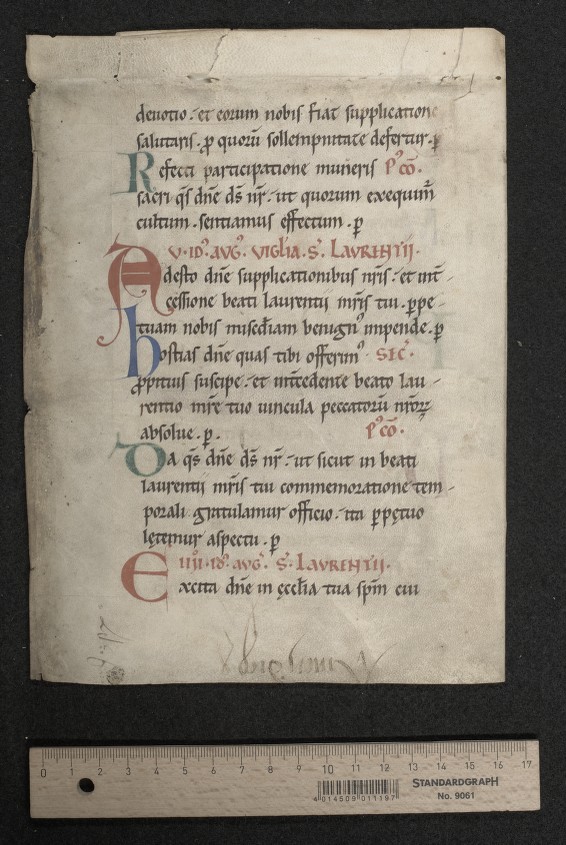 deuotio. et eorum nobis fiat supplicatione
salutaris. ꝑ quorū sollempnitate defertur. ꝑ
Refecti participatione muneris Pꝰcō.
sacri qs̄ dn̄e ds̄ nr̄. ut quorum exequim̄
cultum. sentiamus effectum. ꝑ
V. idꝰ. avgꝰ. viglīa. S. Lavrentii.
Adesto dn̄e supplicationibus nr̄is. et int̄-
cessione beati laurentii mr̄is tui. ꝑpe-
tuam nobis misc̄diam benignꝰ impende. ꝑ
hostias dn̄e quas tibi offerimꝰ SEC̄.
ꝓpitius suscipe. et int̄cedente beato lau-
rentio mr̄e tuo uincula peccatorū nr̄oꝝ
absolue. ꝑ. Pꝰcō.
Da qs̄ dn̄e ds̄ nr̄. ut sicut in beati
laurentii mr̄is tui commemoratione tem-
porali gratulamur officio. ita ꝑpętuo
lętemur aspectu. ꝑ
iiii. idꝰ. avgꝰ. S. Lavrentii.
Excita dn̄e in ęccl̄ia tua spm̄ cui
0 1 2 3 4 5 6 7 8 9 10 11 12 13 14 15 16 17
4 014509 011197
STANDARDGRAPH
No. 9061